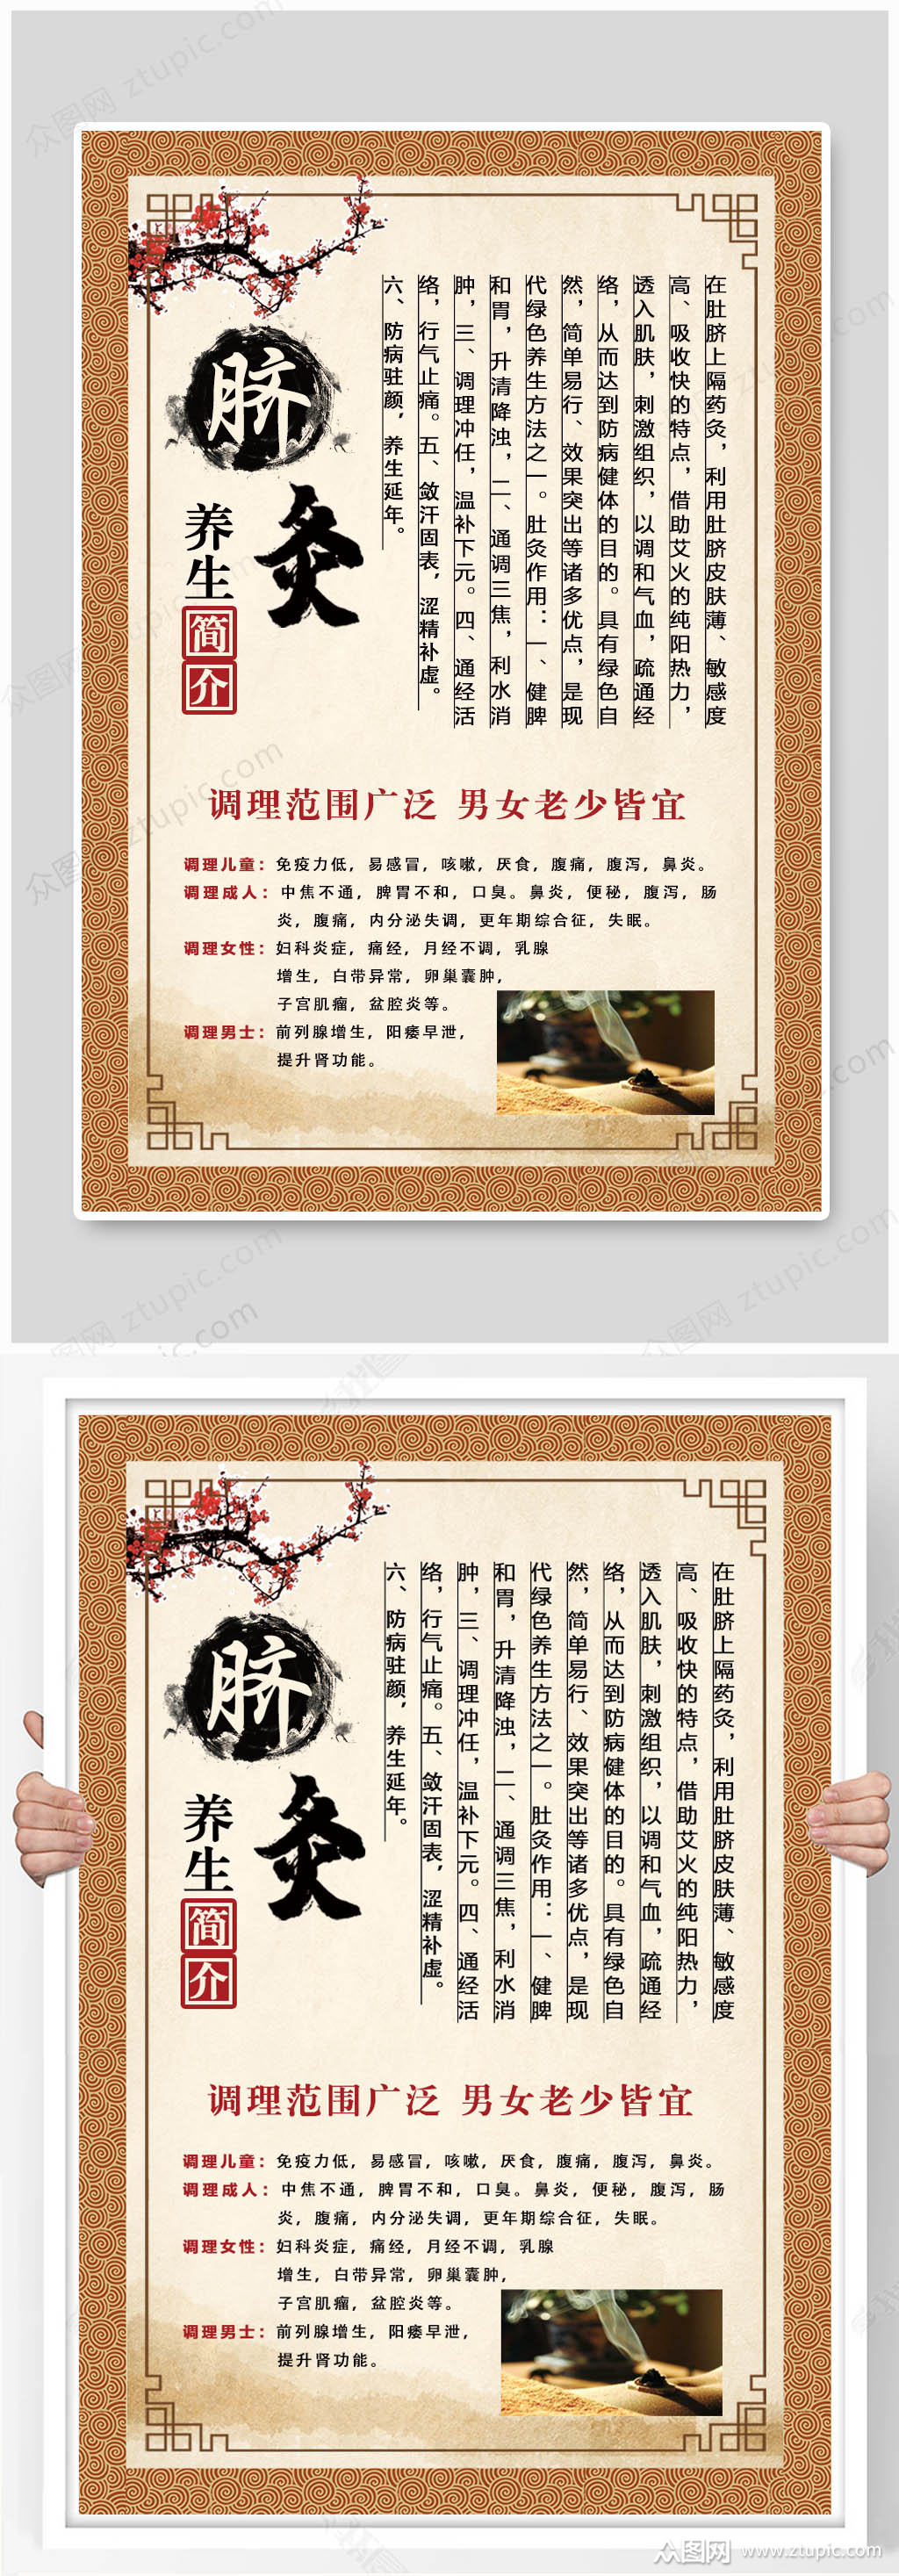 脐
灸
养生
简
介
在肚脐上隔药灸，利用肚脐皮肤薄、敏感度
高、吸收快的特点，借助艾火的纯阳热力，
透入肌肤，刺激组织，以调和气血，疏通经
络，从而达到防病健体的目的。具有绿色自
然，简单易行、效果突出等诸多优点，是现
代绿色养生方法之一。肚灸作用：一、健脾
和胃，升清降浊，二、通调三焦，利水消
肿，三、调理冲任，温补下元。四、通经活
络，行气止痛。五、敛汗固表，涩精补虚。
六、防病驻颜，养生延年。
调理范围广泛 男女老少皆宜
调理儿童：免疫力低，易感冒，咳嗽，厌食，腹痛，腹泻，鼻炎。
调理成人：中焦不通，脾胃不和，口臭。鼻炎，便秘，腹泻，肠
炎，腹痛，内分泌失调，更年期综合征，失眠。
调理女性：妇科炎症，痛经，月经不调，乳腺
增生，白带异常，卵巢囊肿，
子宫肌瘤，盆腔炎等。
调理男士：前列腺增生，阳痿早泄，
提升肾功能。
脐
灸
养生
简
介
在肚脐上隔药灸，利用肚脐皮肤薄、敏感度
高、吸收快的特点，借助艾火的纯阳热力，
透入肌肤，刺激组织，以调和气血，疏通经
络，从而达到防病健体的目的。具有绿色自
然，简单易行、效果突出等诸多优点，是现
代绿色养生方法之一。肚灸作用：一、健脾
和胃，升清降浊，二、通调三焦，利水消
肿，三、调理冲任，温补下元。四、通经活
络，行气止痛。五、敛汗固表，涩精补虚。
六、防病驻颜，养生延年。
调理范围广泛 男女老少皆宜
调理儿童：免疫力低，易感冒，咳嗽，厌食，腹痛，腹泻，鼻炎。
调理成人：中焦不通，脾胃不和，口臭。鼻炎，便秘，腹泻，肠
炎，腹痛，内分泌失调，更年期综合征，失眠。
调理女性：妇科炎症，痛经，月经不调，乳腺
增生，白带异常，卵巢囊肿，
子宫肌瘤，盆腔炎等。
调理男士：前列腺增生，阳痿早泄，
提升肾功能。
众图网 www.ztupic.com